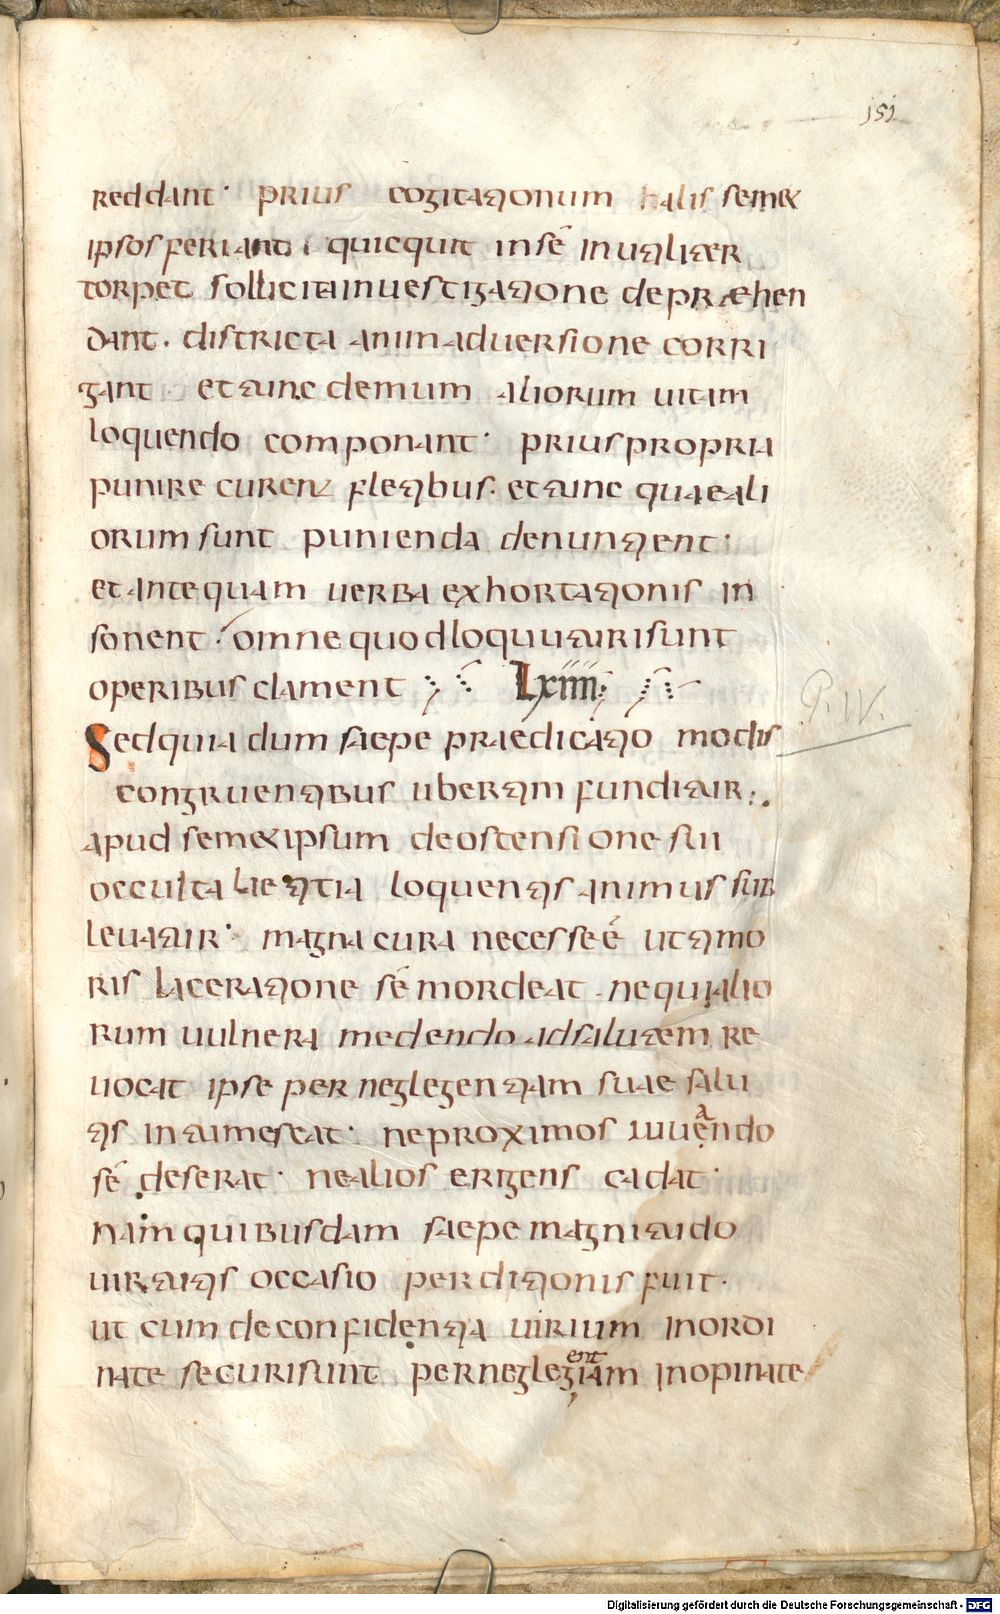 151
reddant· prius cogitationum halis semet
ipsos feriant· quicquit insē inutiliter
torpet sollicitainuestigatione depraehen
dant. districta animaduersione corri
gant et tunc demum aliorum uitam
loquendo componant· priuspropria
punire curent fletibus. et tunc quaeali
orum sunt punienda denuntient·
et antequam uerba exhortationis in
sonent· omnequodloquuturisunt
operibus clament Lxiiii
P. W.
Sedquia dum saepe praedicatio modis
congruentibus ubertim funditur;.
apud semetipsum deostensione sui
occulta laetitia loquentis animus sub
leuatur· magna cura necesse é ut timo
ris laceratione sē mordeat. nequialio
rum uulnera medendo adsalutem re
uocat ipse per neglegentiam suae salu
tis intumescat· neproximos iuuendo
a
sē deserat· nealios erigens cadat·
nam quibusdam saepe magnitudo
uirtutis occasio perditionis fuit.
ut cum deconfidentia uirium inordi
nate securisunt perneglegiam inopinate
ent
Digitalisierung gefördert durch die Deutsche Forschungsgemeinschaft - DFG